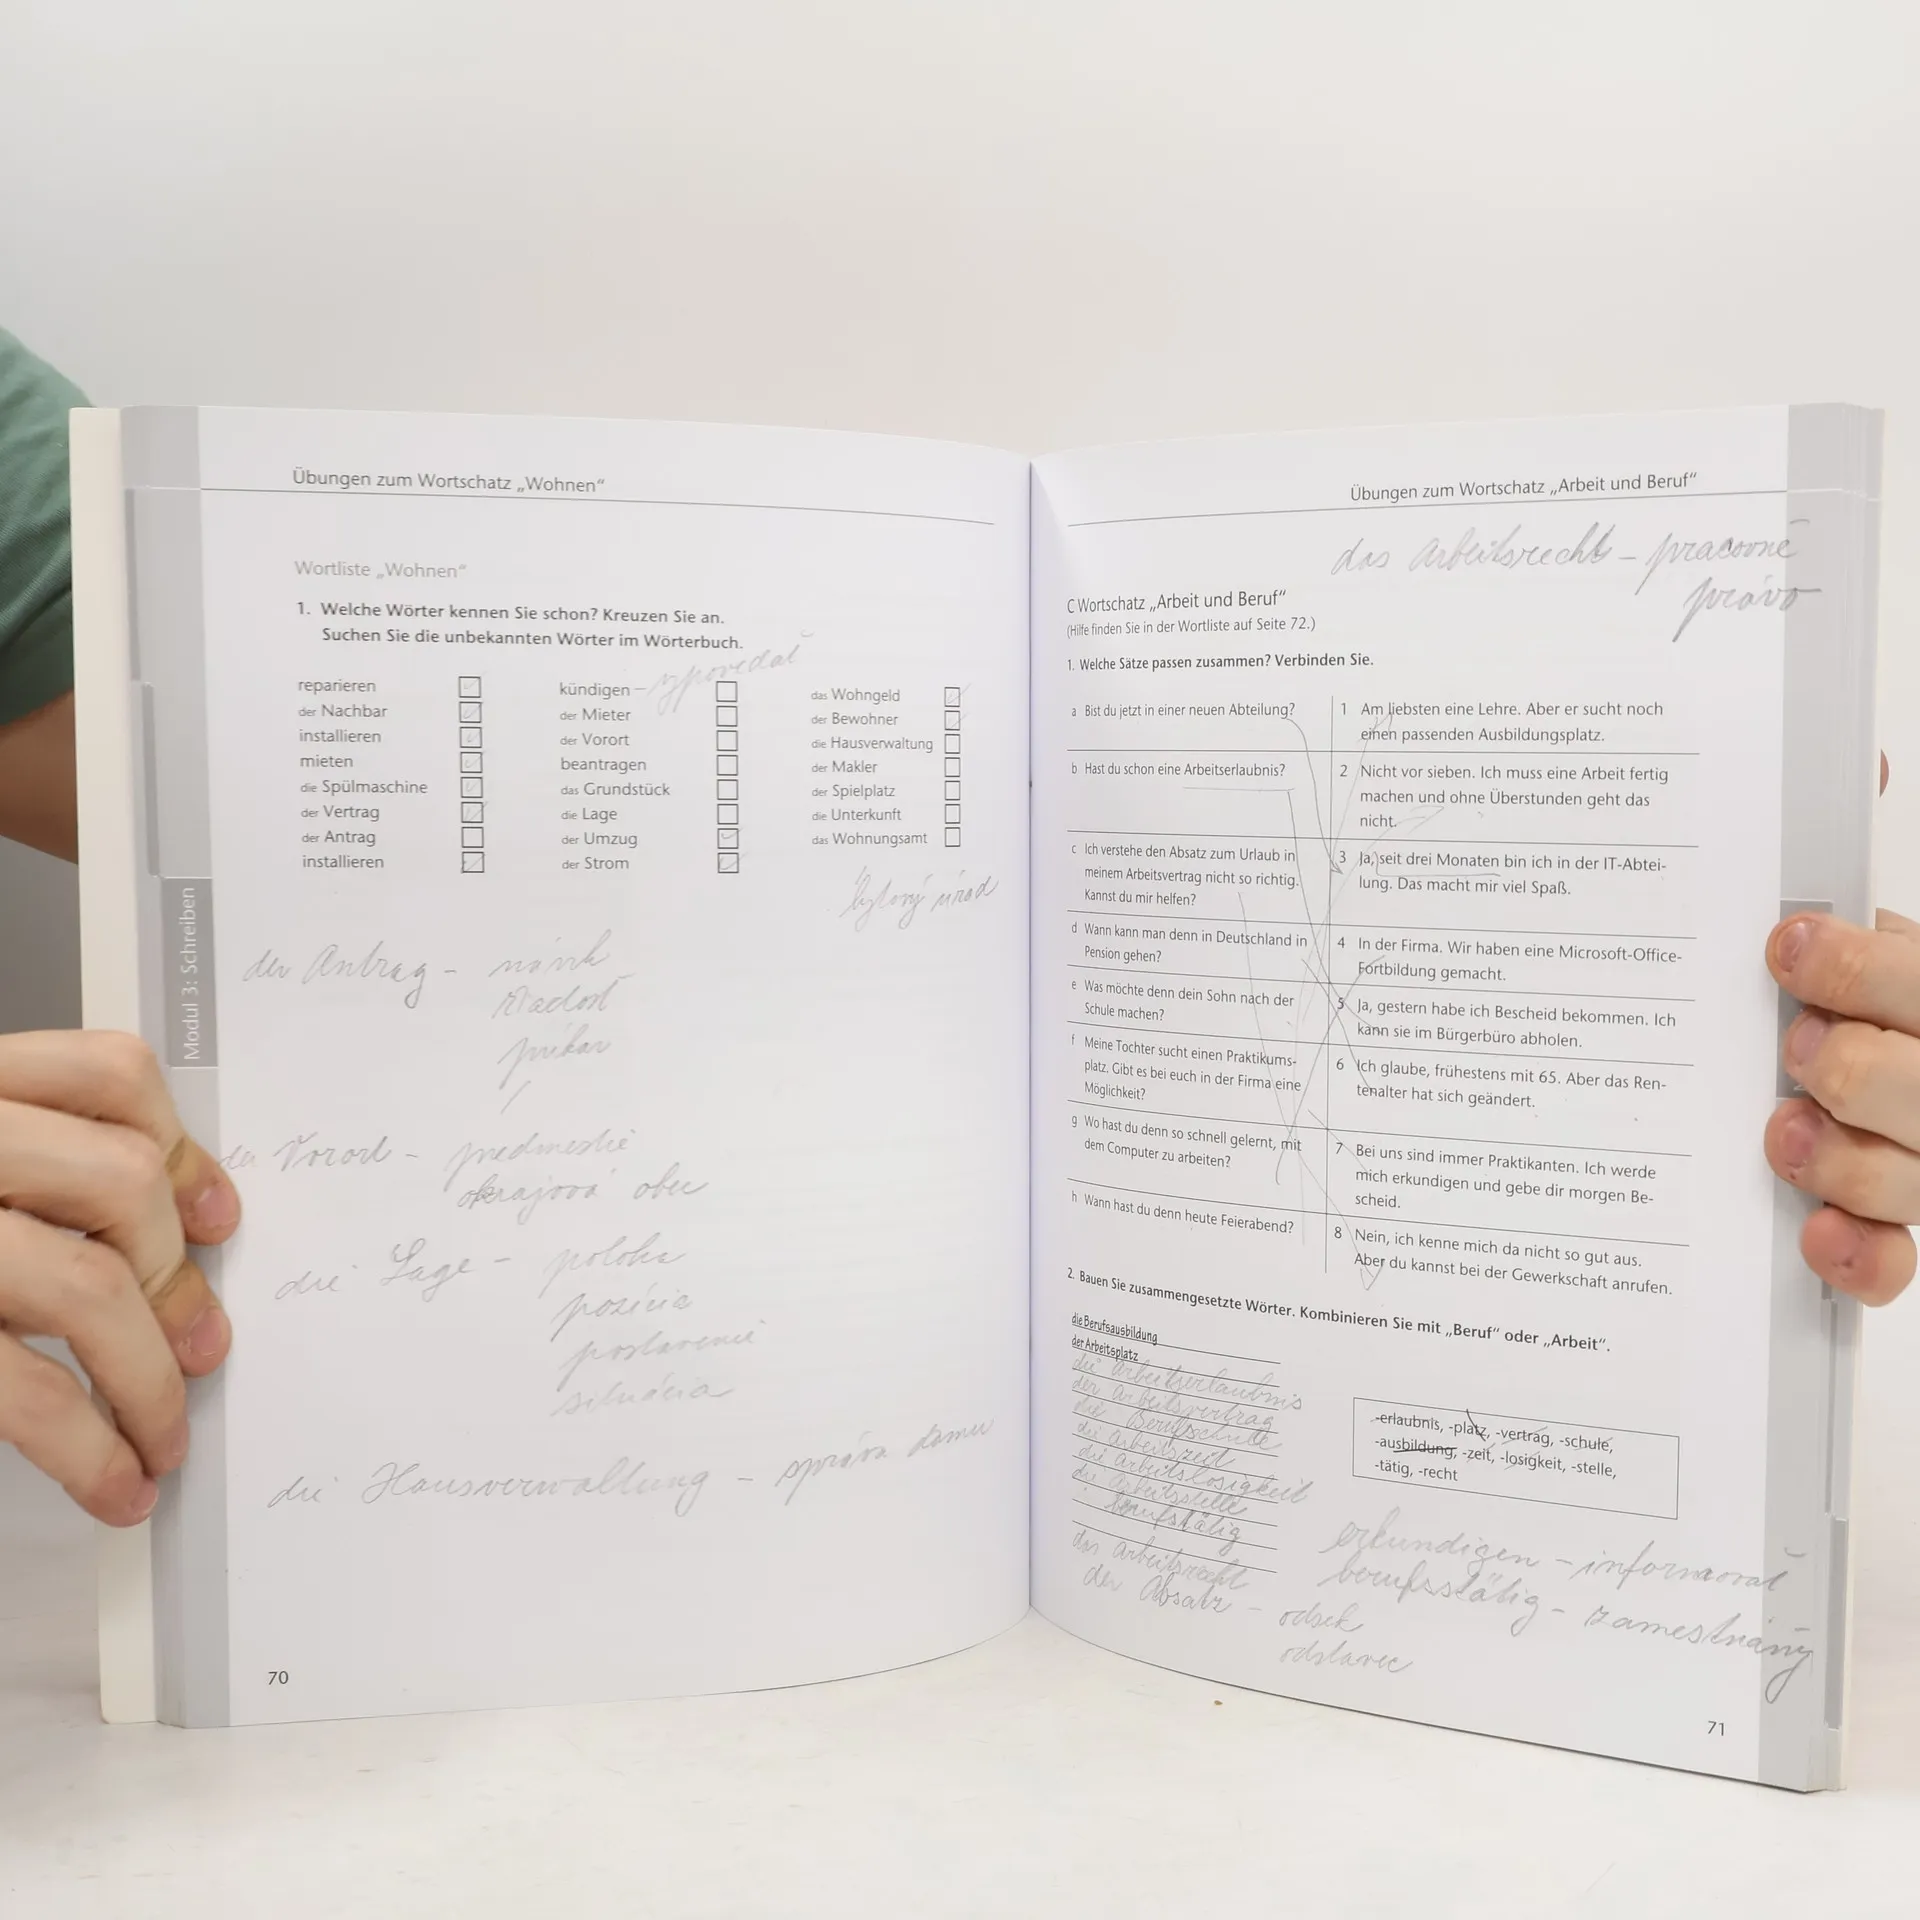 Übungen zum Wortschatz „Wohnen“
Wortliste „Wohnen“
1. Welche Wörter kennen Sie schon? Kreuzen Sie an.
Suchen Sie die unbekannten Wörter im Wörterbuch.
reparieren
der Nachbar
installieren
mieten
die Spülmaschine
der Vertrag
der Antrag
installieren
kündigen – vypovedať
der Mieter
der Vorort
beantragen
das Grundstück
die Lage
der Umzug
der Strom
das Wohngeld
der Bewohner
die Hausverwaltung
der Makler
der Spielplatz
die Unterkunft
das Wohnungsamt
bytový úrad
der Antrag – návrh
žiadosť
príkaz
der Vorort – predmestie
okrajová obec
die Lage – poloha
pozícia
postavenie
situácia
die Hausverwaltung – správa domu
Modul 3: Schreiben
70
Übungen zum Wortschatz „Arbeit und Beruf“
das Arbeitsrecht – pracovné
právo
C Wortschatz „Arbeit und Beruf“
(Hilfe finden Sie in der Wortliste auf Seite 72.)
1. Welche Sätze passen zusammen? Verbinden Sie.
a Bist du jetzt in einer neuen Abteilung?
b Hast du schon eine Arbeitserlaubnis?
c Ich verstehe den Absatz zum Urlaub in
meinem Arbeitsvertrag nicht so richtig.
Kannst du mir helfen?
d Wann kann man denn in Deutschland in
Pension gehen?
e Was möchte denn dein Sohn nach der
Schule machen?
f Meine Tochter sucht einen Praktikums-
platz. Gibt es bei euch in der Firma eine
Möglichkeit?
g Wo hast du denn so schnell gelernt, mit
dem Computer zu arbeiten?
h Wann hast du denn heute Feierabend?
1 Am liebsten eine Lehre. Aber er sucht noch
einen passenden Ausbildungsplatz.
2 Nicht vor sieben. Ich muss eine Arbeit fertig
machen und ohne Überstunden geht das
nicht.
3 Ja, seit drei Monaten bin ich in der IT-Abtei-
lung. Das macht mir viel Spaß.
4 In der Firma. Wir haben eine Microsoft-Office-
Fortbildung gemacht.
5 Ja, gestern habe ich Bescheid bekommen. Ich
kann sie im Bürgerbüro abholen.
6 Ich glaube, frühestens mit 65. Aber das Ren-
tenalter hat sich geändert.
7 Bei uns sind immer Praktikanten. Ich werde
mich erkundigen und gebe dir morgen Be-
scheid.
8 Nein, ich kenne mich da nicht so gut aus.
Aber du kannst bei der Gewerkschaft anrufen.
2. Bauen Sie zusammengesetzte Wörter. Kombinieren Sie mit „Beruf“ oder „Arbeit“.
die Berufsausbildung
der Arbeitsplatz
die Arbeitserlaubnis
der Arbeitsvertrag
die Berufsschule
die Arbeitszeit
die Arbeitslosigkeit
die Arbeitsstelle
berufstätig
das Arbeitsrecht
der Absatz – odsek
odstavec
-erlaubnis, -platz, -vertrag, -schule,
-ausbildung, -zeit, -losigkeit, -stelle,
-tätig, -recht
erkundigen – informovať
berufsstätig – zamestnaný
71